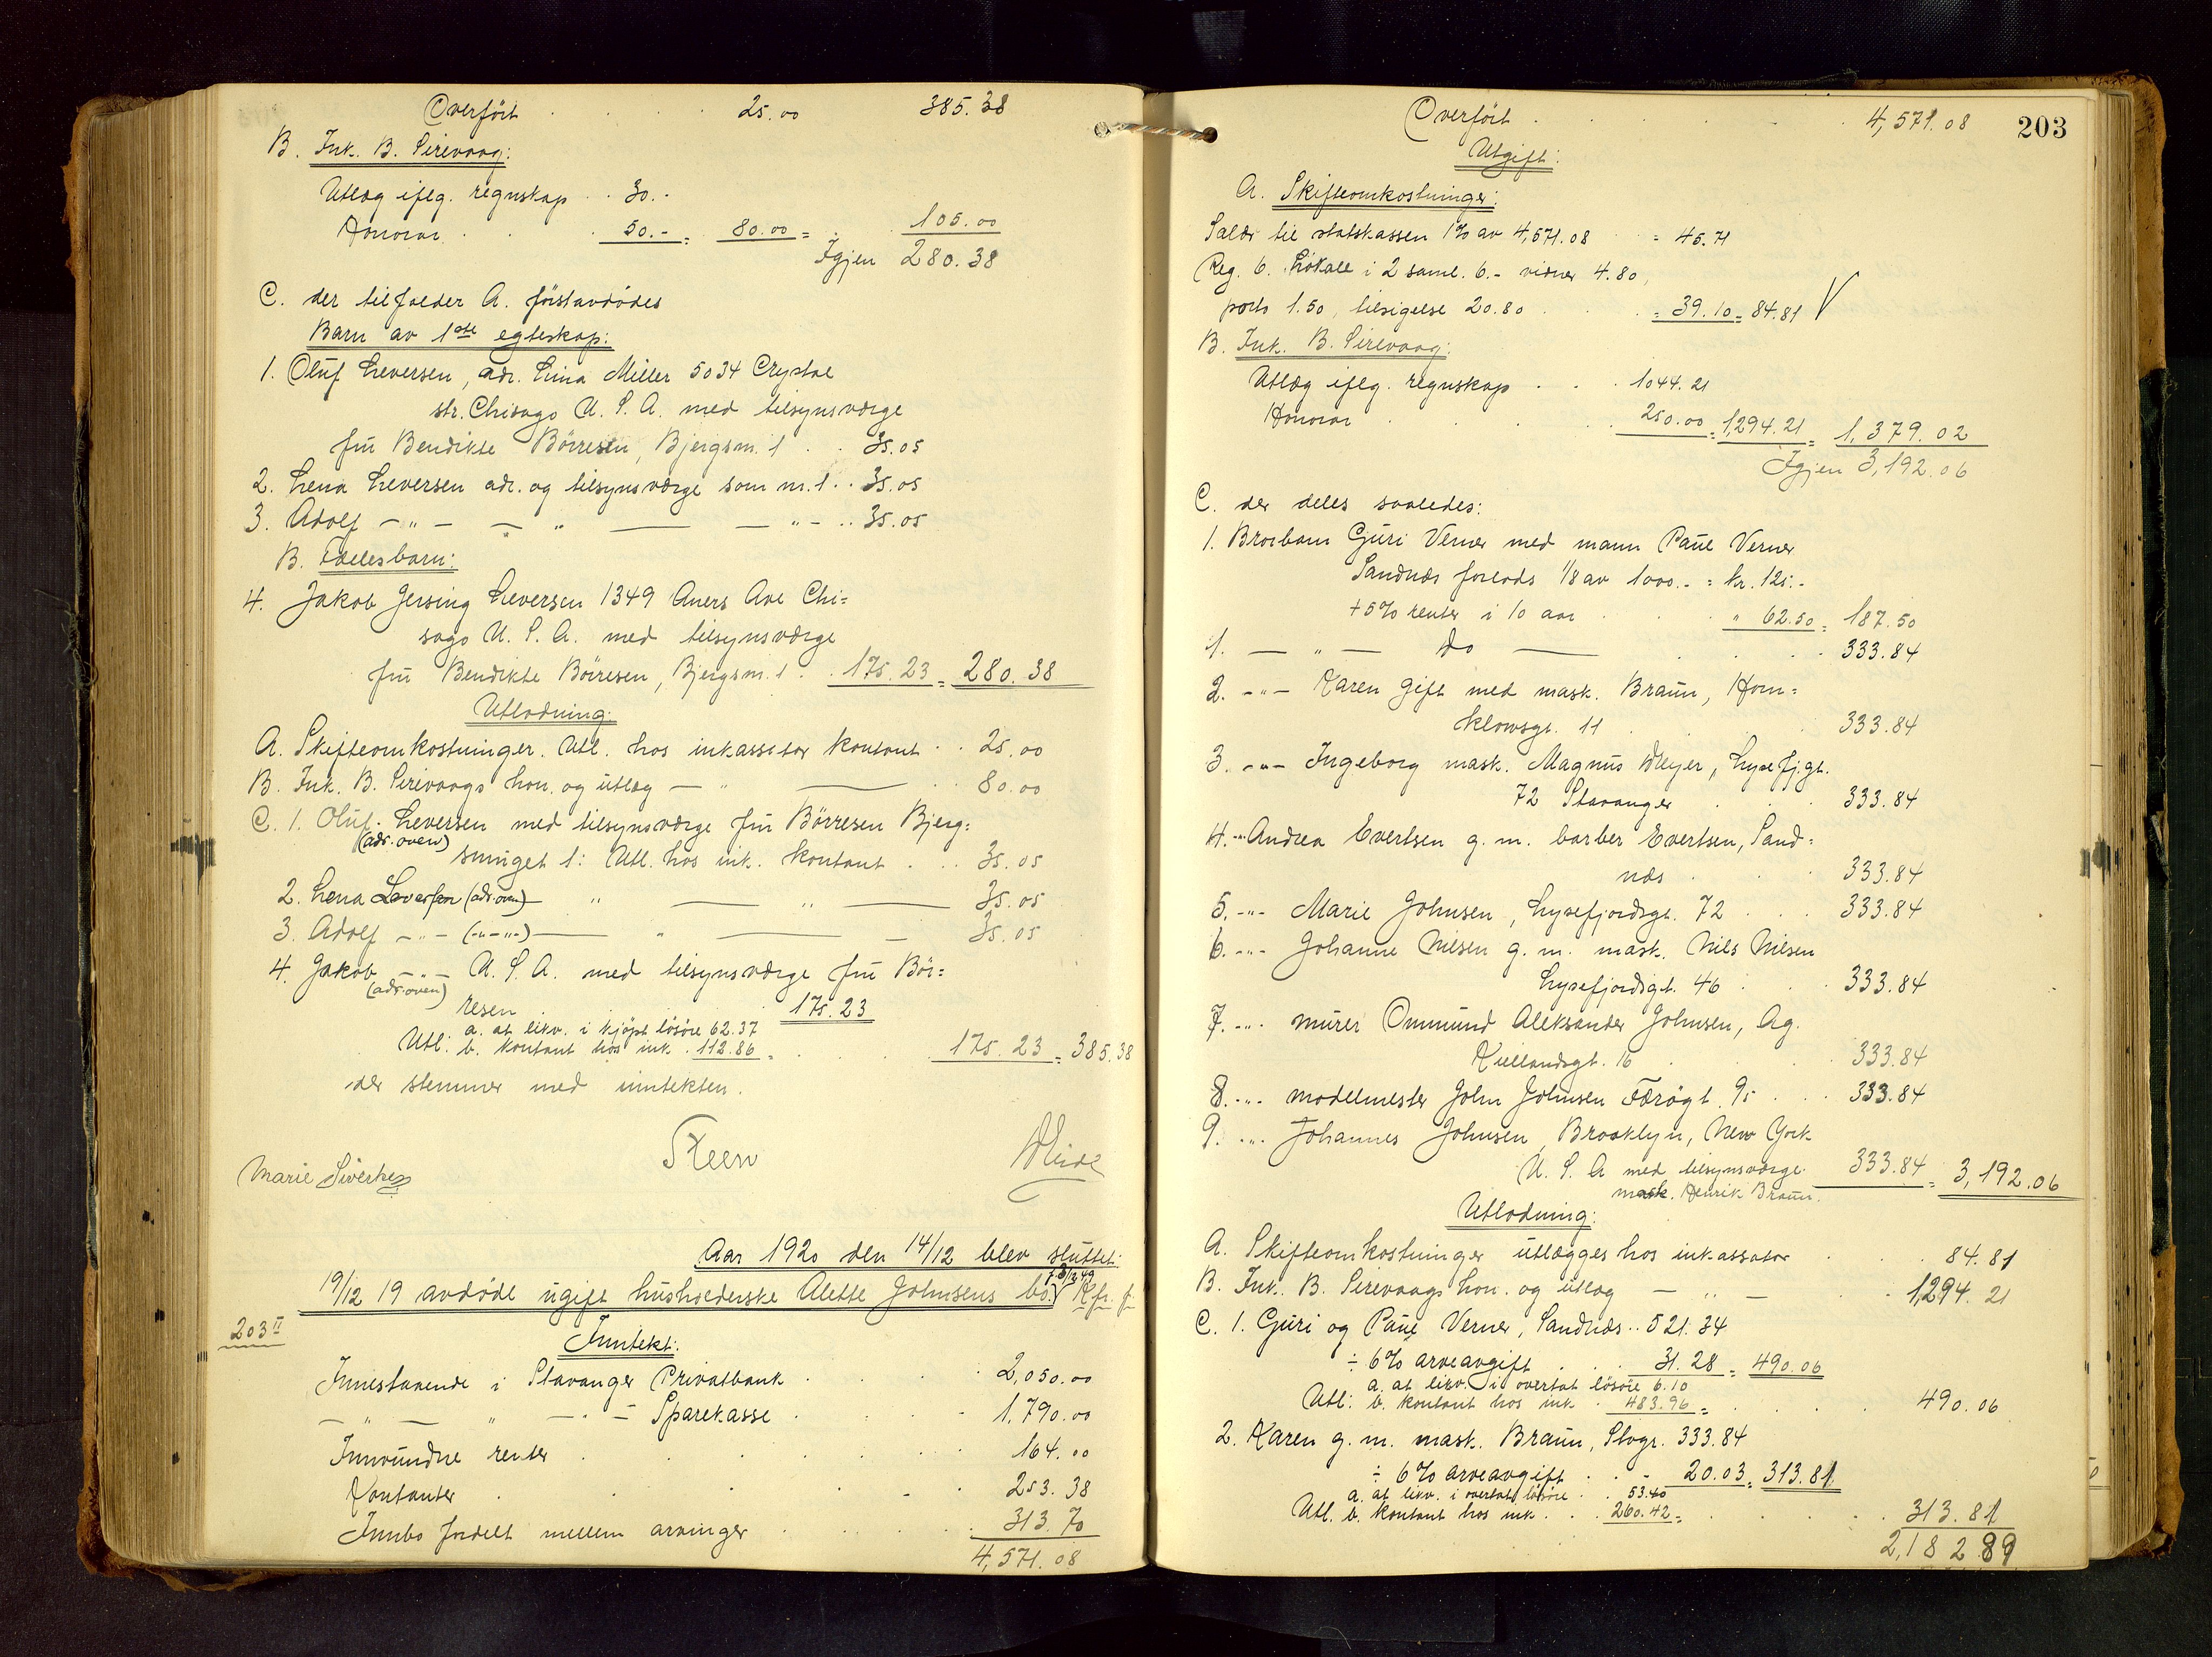 Overført . . . 25.00 385.38
B. Ink. B. Sirevaag:
Utlæg iflg. regnskap . . 30.-
Honorar . . 50.- = 80.00 = 105.00
Igjen 280.38
C. der tilfalder A. førstavdødes
Barn av 1ste egteskap:
1. Oluf Leversen, adr. Lina Miller 5034 Crystal
str. Chisago U. S. A. med tilsynsværge
fru Bendikte Börresen, Bjergsm. 1 . . 35.05
2. Lena Leversen adr. og tilsynsværge som nr. 1 . . 35.05
3. Adolf - " - — " — - " - . . 35.05
B. Fællesbarn:
4. Jakob Gersing Leversen 1349 Aners Ave Chi=
sago U. S. A. med tilsynsværge
fru Bendikte Börresen, Bjergsm. 1 . . 175.23 = 280.38
Utlodning:
A. Skifteomkostninger. Utl. hos inkassator kontant . . 25.00
B. Ink. B. Sirevaags hon. og utlæg — " — . . 80.00
C. 1. Oluf Leversen med tilsynsværge fru Börresen Bjerg=
(adr. oven)
smuget 1: Utl. hos ink. kontant . . . 35.05
2. Lena Leversen (adr. oven) — " — " — 35.05
3. Adolf - " - (-"-"-) — " — 35.05
4. Jakob - " - U. S. A. med tilsynsværge fru Bör=
(adr. oven)
resen . . . 175.23
a. at likv. i kjöpt lösöre 62.37
Utl: b. kontant hos ink. 112.86 = . . . 175.23 = 385.38
der stemmer med inntekten.
Marie Siverksen Steen
Aar 1920 den 14/12 blev sluttet:
19/12 19 avdöde ugift husholderske Alette Johnsens bo. Kfr. f.
203 II
Inntekt:
Innestaaende i Stavanger Privatbank . . . 2,050.00
— " — " — " — Sparekasse . . . 1,790.00
Innvundne renter . . . 164.00
Kontanter . . . 253.38
Innbo fordelt mellem arvinger . . . 313.70
4,571.08
Overført . . . 4,571.08
203
Utgift:
A. Skifteomkostninger:
Salær til statskassen 1% av 4,571.08 = 45.71
Reg. 6. Lokale i 2 saml. 6.- vidner 4.80,
porto 1.50, tilsigelse 20.80 . . = 39.10 = 84.81 V
B. Ink. B. Sirevaag:
Utlæg iflg. regnskap . . . 1044.21
Honorar . . . 250.00 = 1,294.21 = 1,379.02
Igjen 3,192.06
C. der deles saaledes:
1. Brorbarn Guri Verner med mann Paul Verner
Sandnæs forlods 1/8 av 1000.- = kr. 125.-
+ 5% renter i 10 aar . . . " 62.50 = 187.50
1. — " — do — . . . 333.84
2. - " - Karen gift med mask. Braun, Horn=
klowsgt. 11 . . . 333.84
3. - " - Ingeborg mask. Magnus Meyer, Lysefj.gt.
72 Stavanger . . . 333.84
4. " Andrea Evertsen g. m. barber Evertsen, Sand=
næs . . . 333.84
5. - " - Marie Johnsen, Lysefjordsgt. 72 . . . 333.84
6. - " - Johanne Nilsen g. m. mask. Nils Nilsen
Lysefjordsgt. 46 . . . 333.84
7. - " - murer Ommund Aleksander Johnsen, Ag.
Kiellandsgt. 16 . . . 333.84
8. - " - modelmester John Johnsen Færögt. 95 . . . 333.84
9. - " - Johannes Johnsen, Brooklyn, New York
U. S. A med tilsynsværge 333.84 = 3,192.06
mask. Henrik Braun.
Utlodning:
A. Skifteomkostninger utlægges hos inkassator . . . 84.81
B. Ink. B. Sirevaags hon. og utlæg — " — . . . 1,294.21
C. 1. Guri og Paul Verner, Sandnæs . . 521.34
÷ 6% arveavgift . . . 31.28 = 490.06
a. at likv. i overtat lösöre 6.10
Utl: b. kontant hos ink . 483.96 = . . . 490.06
2. Karen g. m. mask. Braun, Stvgr. 333.84
÷ 6% arveavgift . . - 20.03 = 313.81
a. at likv. i overtat lösöre . . 53.40
Utl. b. kontant hos ink . . . 260.42 = . . . 313.81
2,182.89